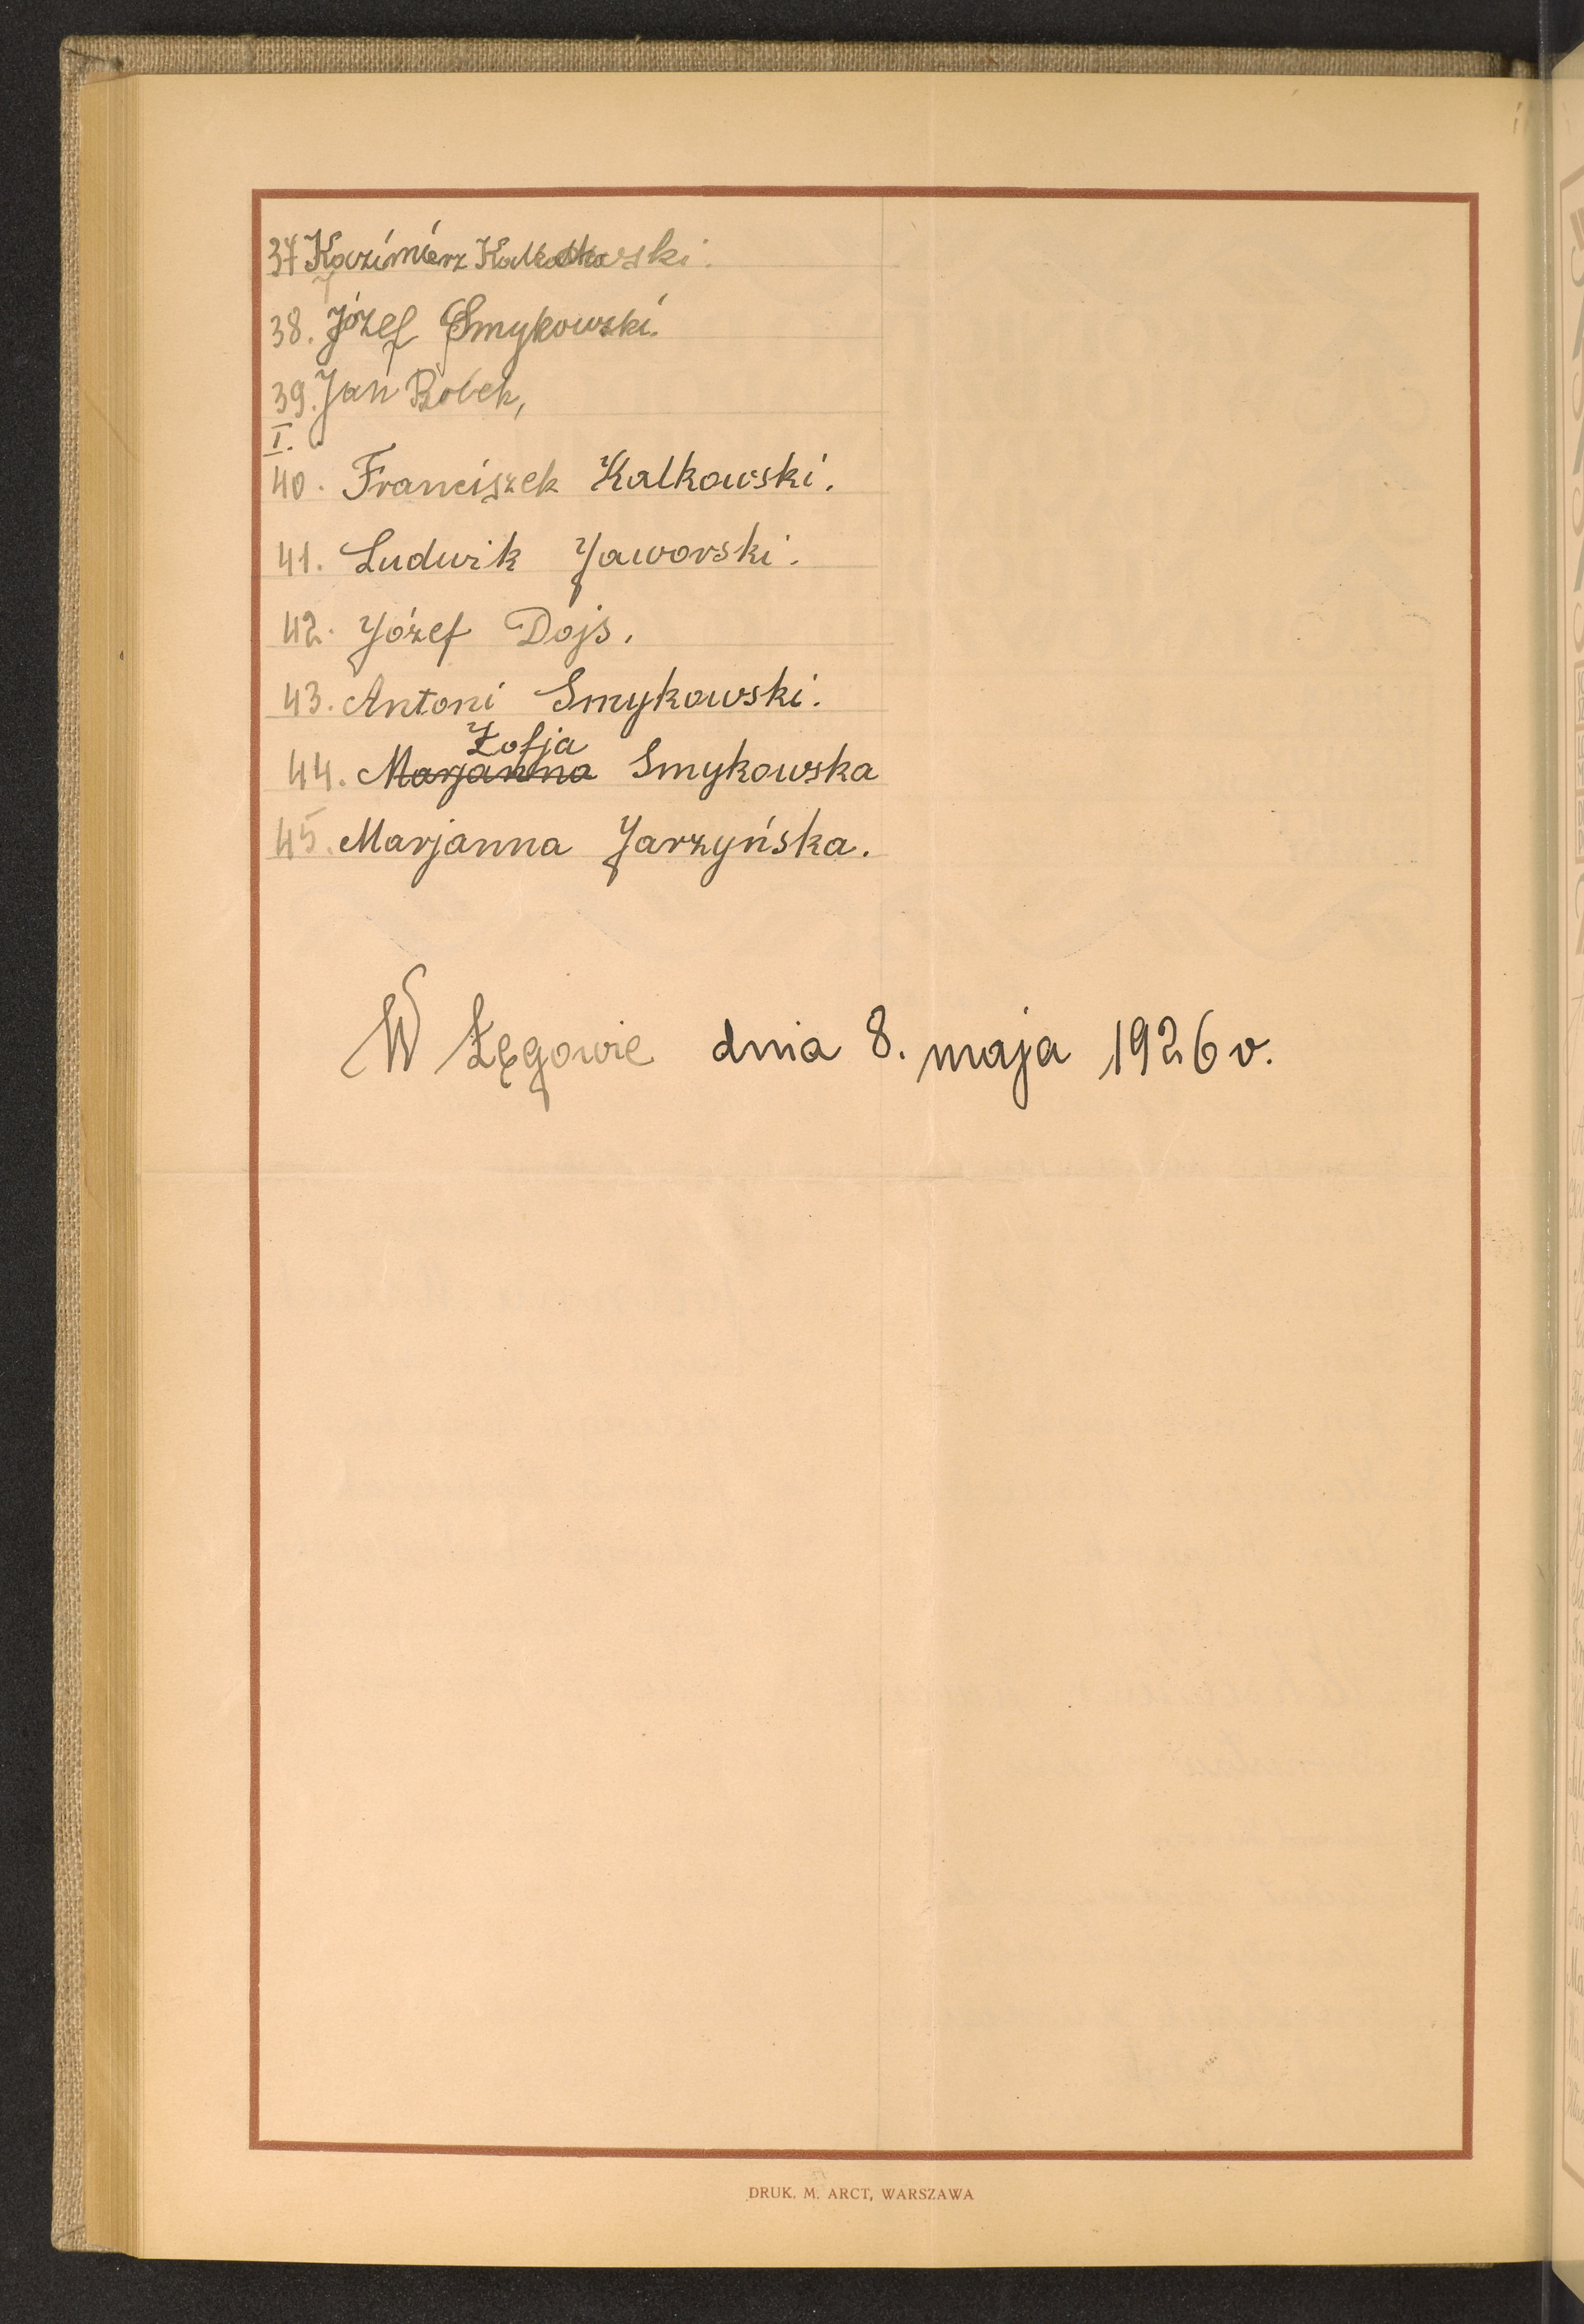 37 Kazimierz Kalkowski.
38. Józef Smykowski.
39. Jan Bobek,
I.
40. Franciszek Kalkowski.
41. Ludwik Jaworski.
42. Józef Dojs.
43. Antoni Smykowski.
Zofja
44. Marjanna Smykowska
45. Marjanna Jarzyńska.
W Łęgowie dnia 8. maja 1926 r.
DRUK. M. ARCT, WARSZAWA